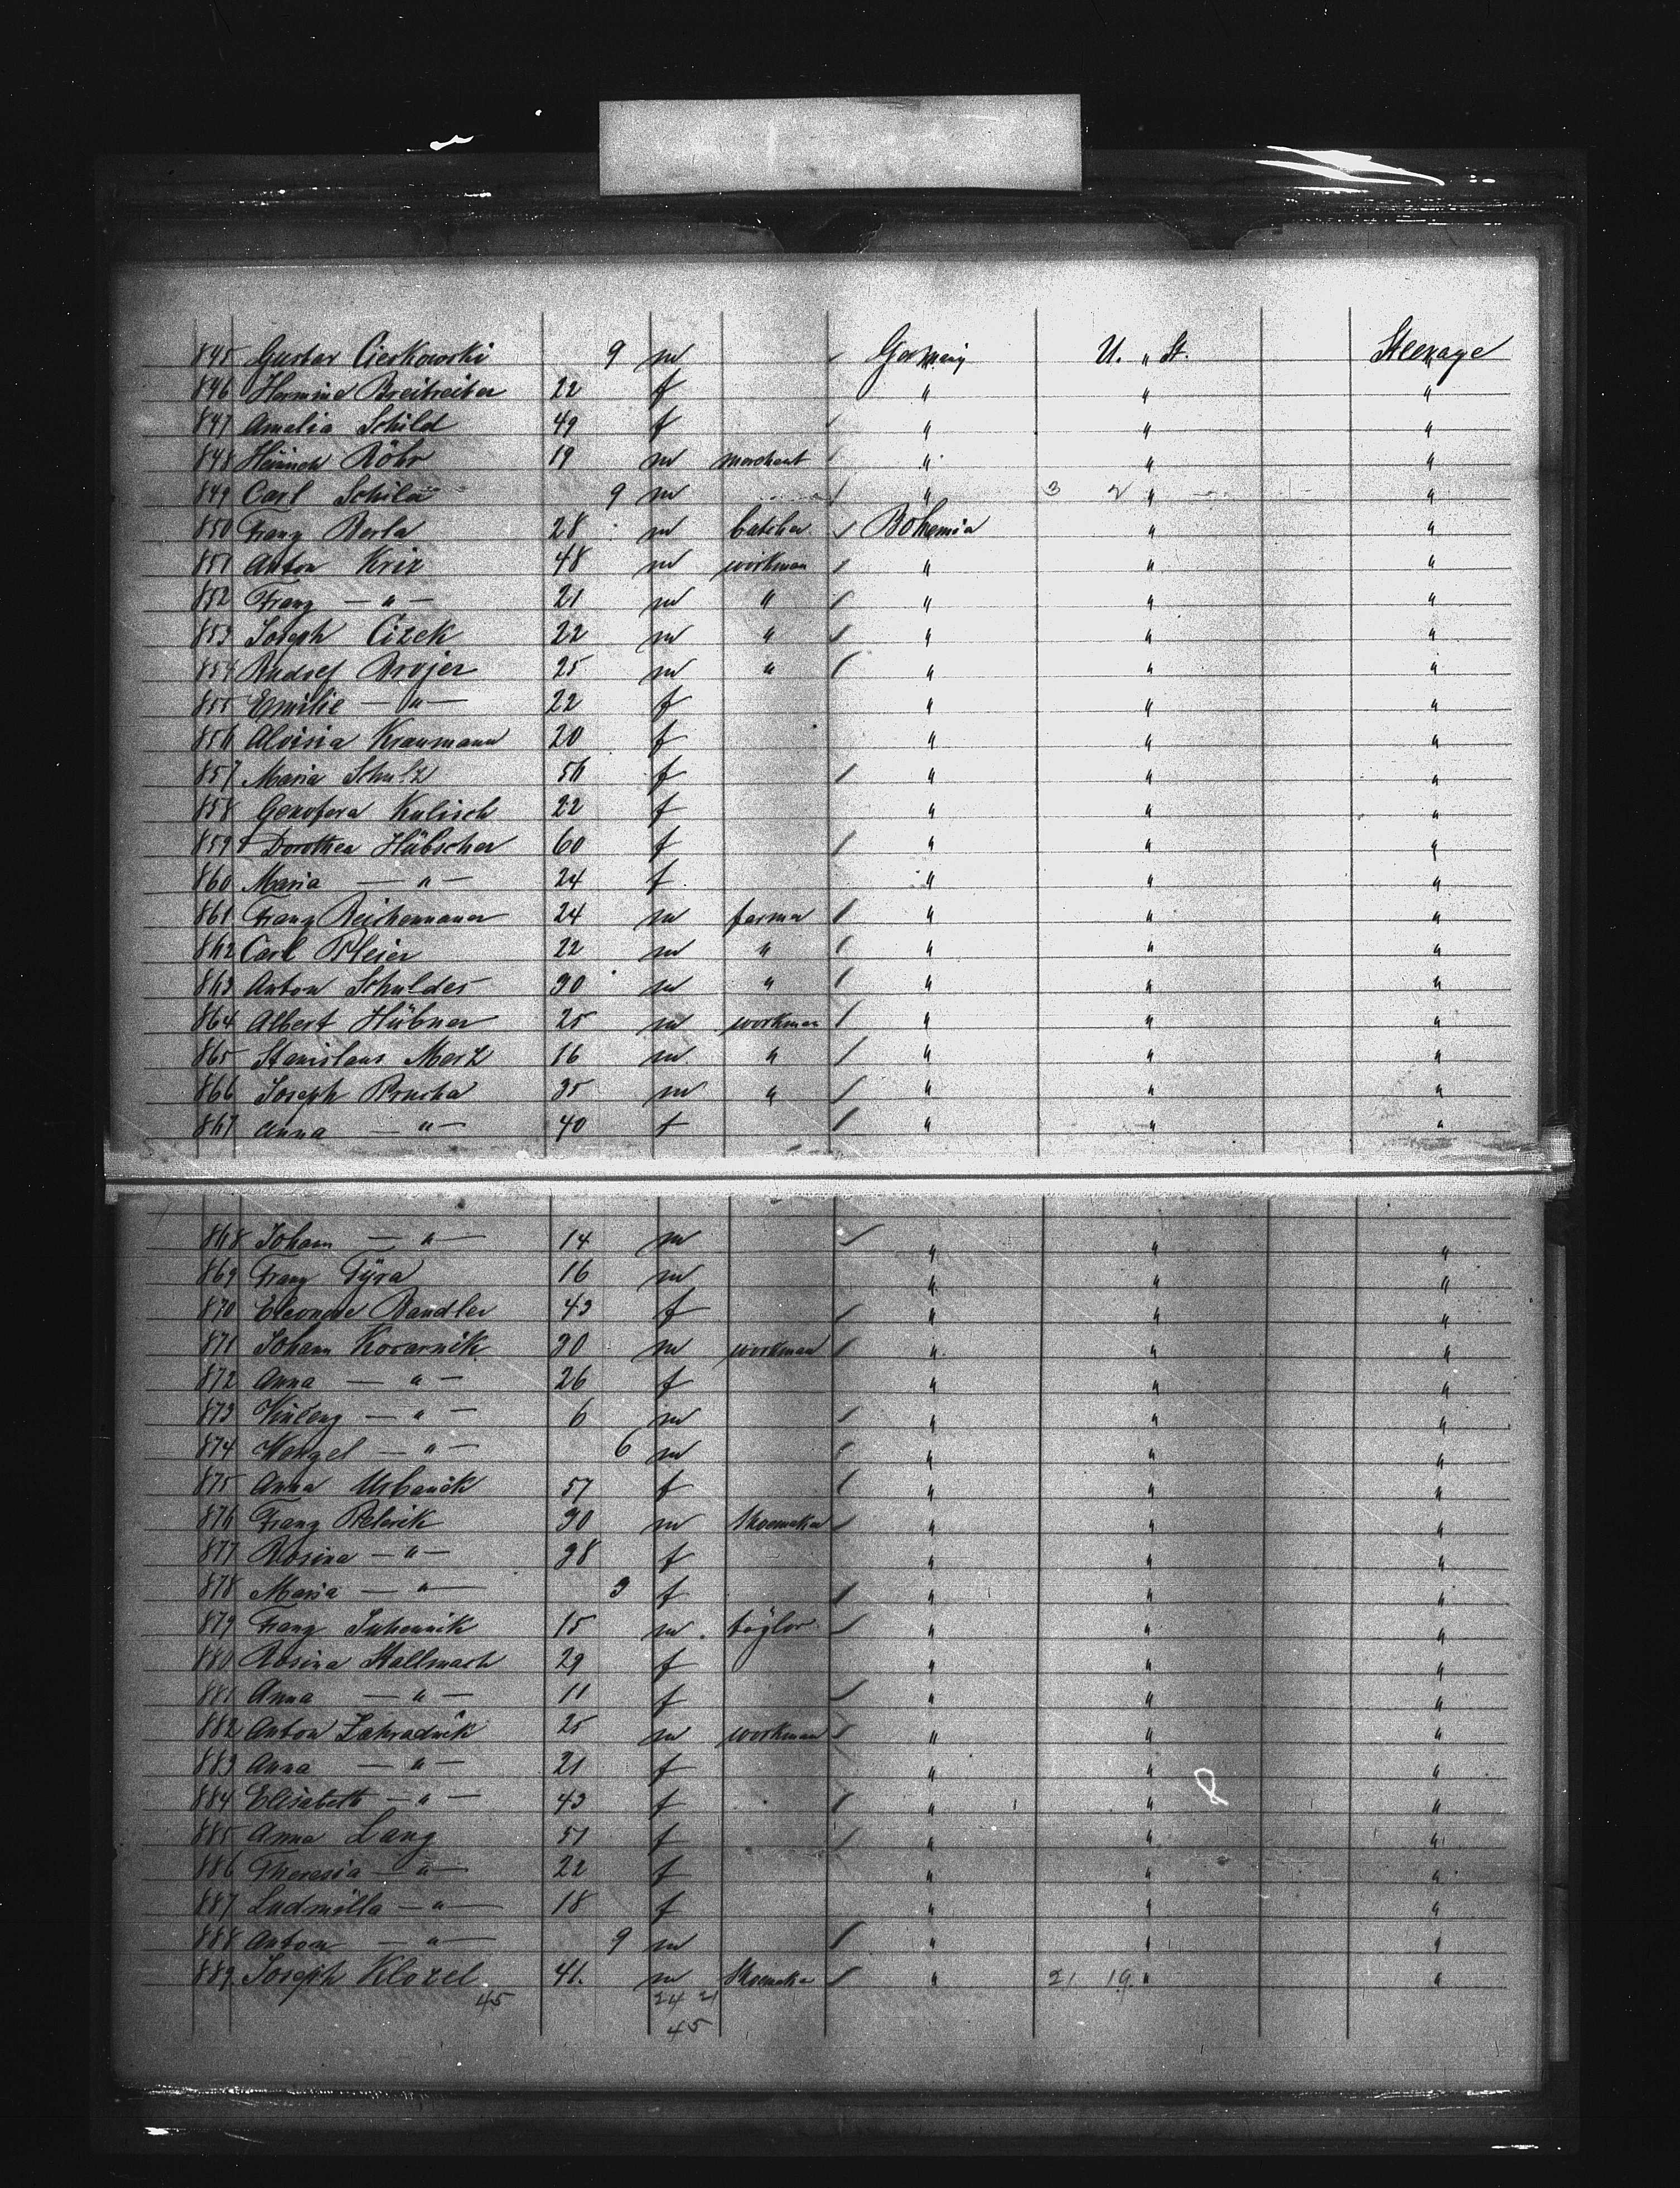 845 Gustav Cieskowski 9 m Germany U. " St. Steerage
846 Hermine Breitreiter 22 f " " "
847 Amalia Schild 49 f " " "
848 Heinrich Röhr 19 m merchant " " "
849 Carl Schild 9 m " 3 2 " "
850 Franz Berla 28 m butcher Bohemia " "
851 Anton Kriz 48 m workman " " "
852 Franz — " — 21 m " " " "
853 Joseph Cizek 22 m " " " "
854 Rudolf Brojer 25 m " " " "
855 Emilie — " — 22 f " " "
856 Aloisia Kraumann 20 f " " "
857 Maria Schulz 56 f " " "
858 Genofeva Kulisch 22 f " " "
859 Dorothea Hübscher 60 f " " "
860 Maria — " — 24 f " " "
861 Franz Reichenauer 24 m farmer " " "
862 Carl Pleier 22 m " " " "
863 Anton Schuldes 30 m " " " "
864 Albert Hübner 25 m workman " " "
865 Stanislaus Merz 16 m " " " "
866 Joseph Prucha 35 m " " " "
867 Anna — " — 40 f " " "
868 Johann — " — 14 m " " "
869 Franz Tÿra 16 m " " "
870 Eleonore Bandler 43 f " " "
871 Johann Kovarnik 30 m workman " " "
872 Anna — " — 26 f " " "
873 Vincenz — " — 6 m " " "
874 Wenzel — " — 6 m " " "
875 Anna Urbanek 57 f " " "
876 Franz 30 m Shoemaker " " "
877 Rosina — " — 38 f " " "
878 Maria — " — 3 f " " "
879 Franz 15 m taylor " " "
880 Rosina Hallmach 29 f " " "
881 Anna — " — 11 f " " "
882 Anton Zahradnik 25 m workman " " "
883 Anna — " — 21 f " " "
884 Elisabeth — " — 43 f " " "
885 Anna Lang 51 f " " "
886 Theresia — " — 22 f " " "
887 Ludmilla — " — 18 f " " "
888 Anton — " — 9 m " " "
889 Joseph Klozel 41. m Shoemaker " 21 19. " "
45 24 21
45
8